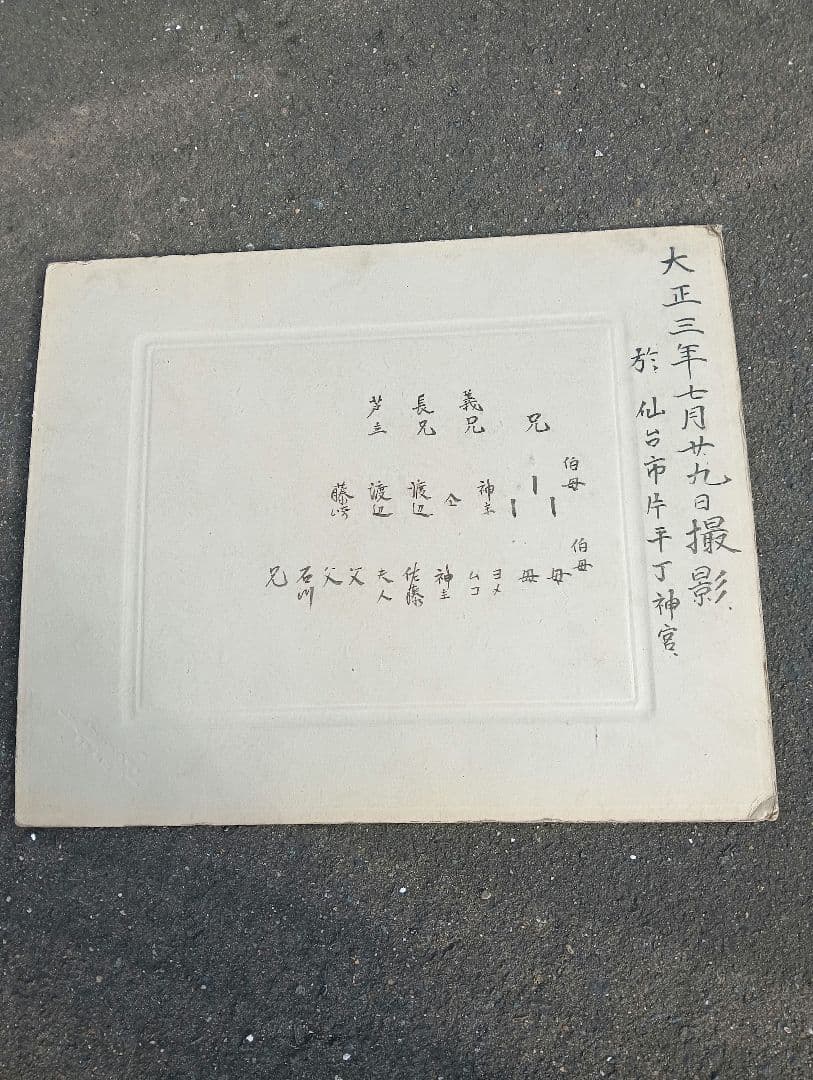 大正三年七月廿九日撮影、
於仙台市片平丁神宮、
兄
義兄
長兄
芦立
伯母
神主
仝
渡辺
渡辺
藤崎
伯母
母
母
ヨメ
ムコ
神主
佐藤
夫人
父
父
石川
兄